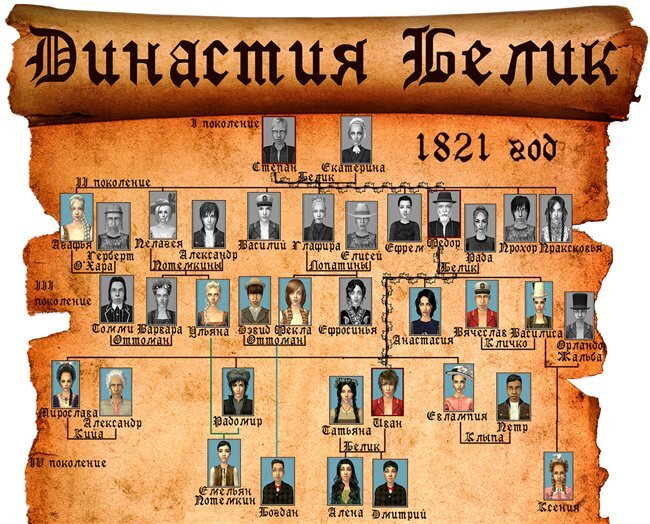 Династия Белик
I поколение
1821 год
Степан Екатерина
Белик
II поколение
Агафья Герберт Пелагея Александр Василий Глафира Елисей Ефрем Федор Рада Прохор Прасковья
О'Хара Потемкины Лопатины Белик
III
поколение
Томми Варвара Ульяна Дэвид Фекла Ефросинья Анастасия Вячеслав Василиса Орландо
Оттоман Оттоман Кличко Жальба
Мирослава Александр Радомир Татьяна Иван Евлампия Петр
Кийа Белик Клыпа
IV поколение
Емельян Потемкин Богдан Алена Дмитрий Ксения